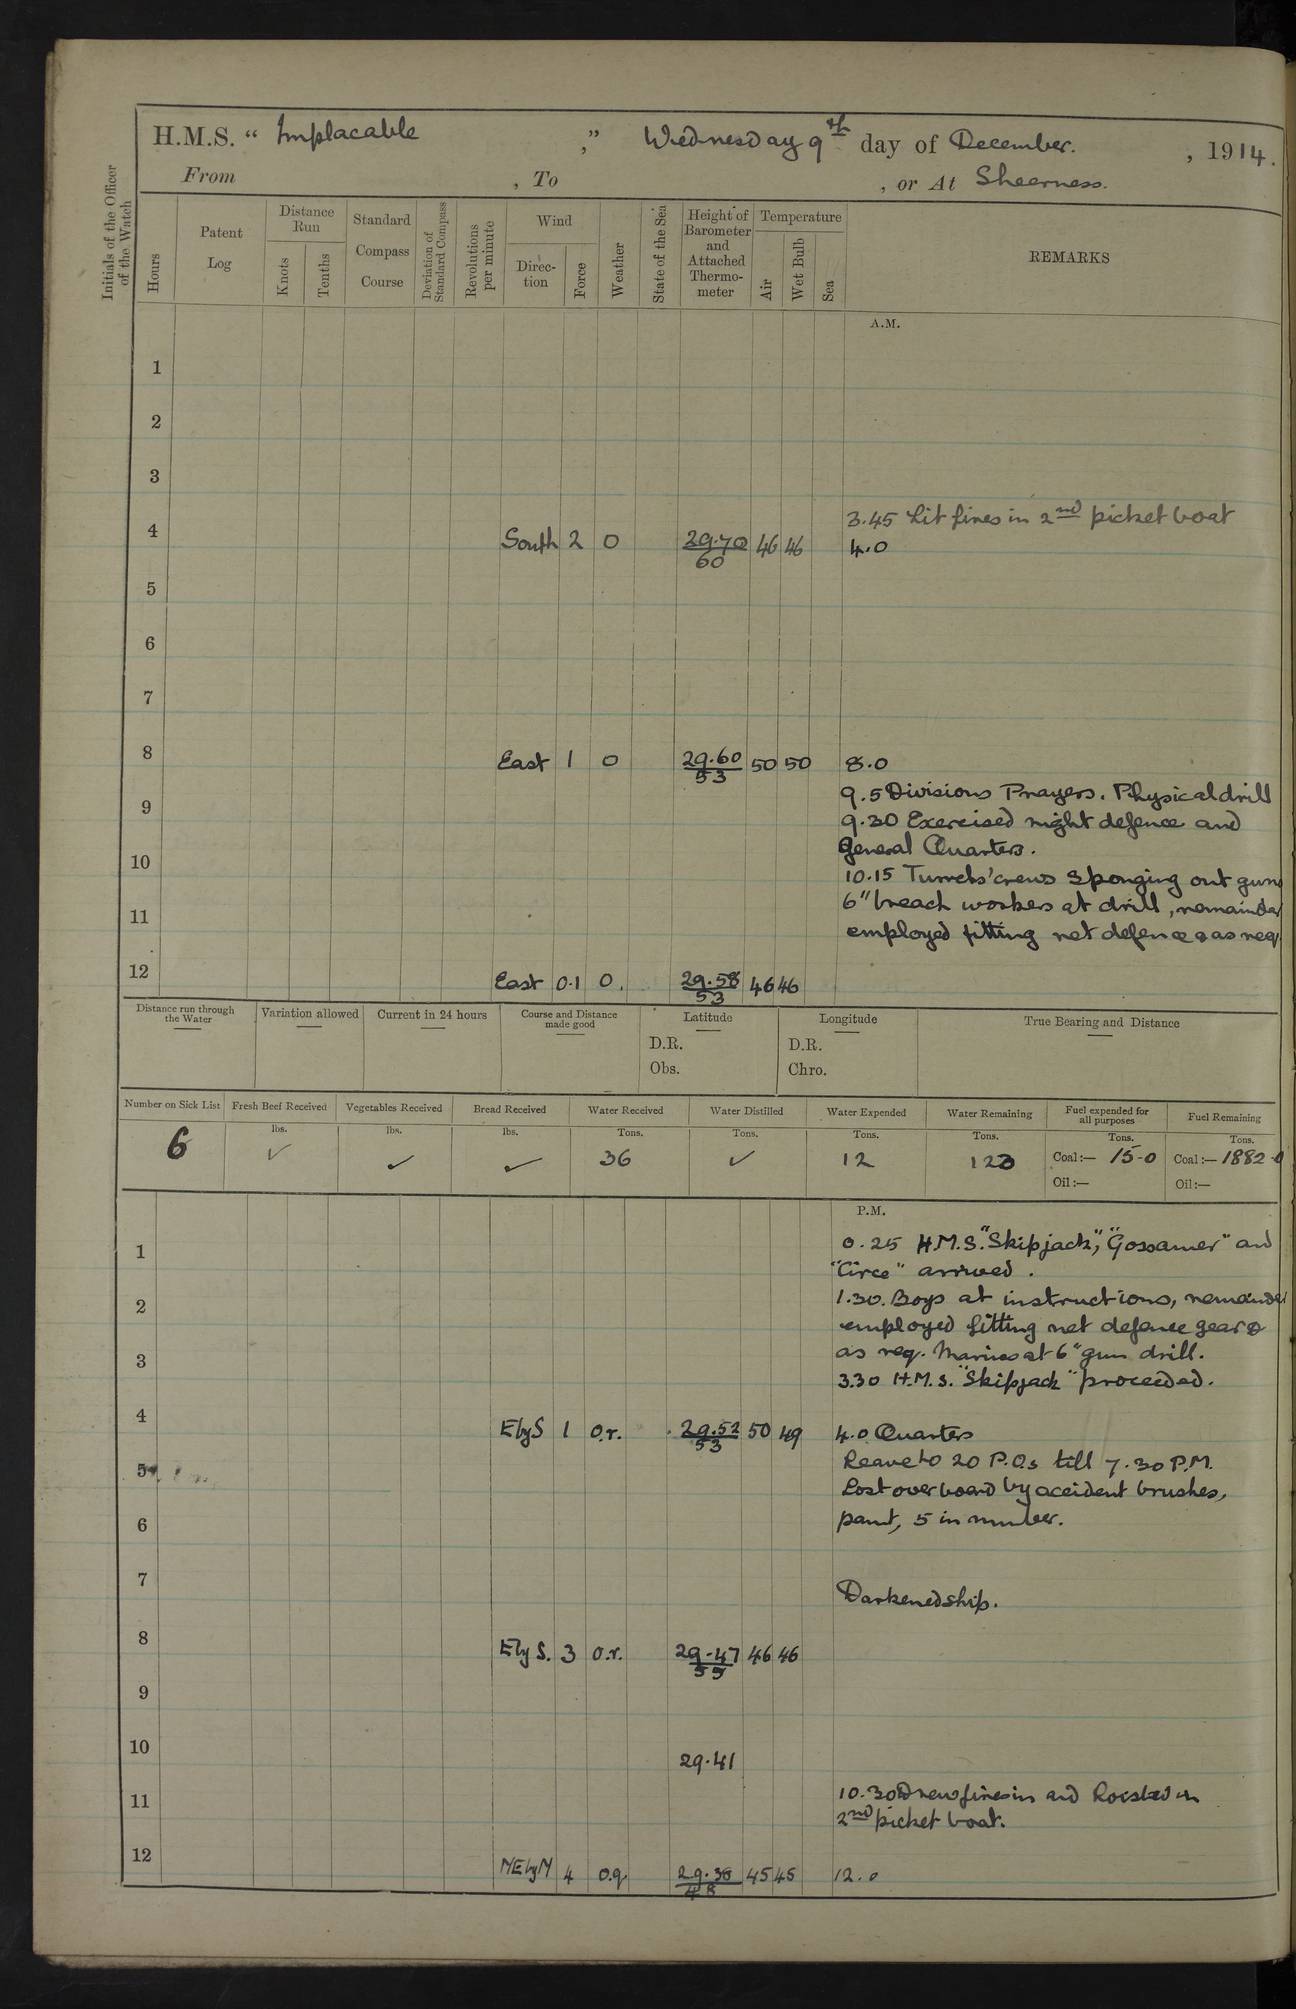 H.M.S. “ Implacable ,” Wednesday 9th day of December. , 1914.
From , To , or At Sheerness.
Initials of the Officer of the Watch
Hours
Patent Log
Distance Run
Knots
Tenths
Standard Compass Course
Deviation of Standard Compass
Revolutions per minute
Wind
Direc-tion
Force
Weather
State of the Sea
Height of Barometer and Attached Thermo-meter
Temperature
Air
Wet Bulb
Sea
REMARKS
A.M.
1
2
3
3.45 Lit fires in 2nd picket boat
4 South 2 0 29.70 46 46 4.0
60
5
6
7
8 East 1 0 29.60 50 50 8.0
53
9.5 Divisions Prayers. Physical drill
9
9.30 Exercised night defence and
General Quarters.
10
10.15 Turrets' crews sponging out guns
6" breach workers at drill, remainder
11
employed fitting net defence & as req.
12 East 0.1 0. 29.58 46 46
53
Distance run through the Water
Variation allowed
Current in 24 hours
Course and Distance made good
Latitude
D.R.
Obs.
Longitude
D.R.
Chro.
True Bearing and Distance
Number on Sick List
Fresh Beef Received
Vegetables Received
Bread Received
Water Received
Water Distilled
Water Expended
Water Remaining
Fuel expended for all purposes
Fuel Remaining
lbs. lbs. lbs. Tons. Tons. Tons. Tons. Tons. Tons.
6 ✓ ✓ ✓ 36 ✓ 12 123 Coal:— 15-0 Coal:— 1882-0
Oil:— Oil:—
P.M.
0.25 H.M.S. "Skipjack", "Gossamer" and
1
"Circe" arrived.
1.30. Boys at instructions, remainder
2
employed fitting net defence gear &
as req. Marines at 6" gun drill.
3
3.30 H.M.S. "Skipjack" proceeded.
4 E by S 1 o.r. 29.52 50 49 4.0 Quarters
53
Leave to 20 P.Os till 7.30 P.M.
5
Lost overboard by accident brushes,
paint, 5 in number.
6
7
Darkened ship.
8 E by S. 3 o.r. 29.47 46 46
55
9
10 29.41
10.30 Drew fires in and hoisted in
11
2nd picket boat.
12 NE by N 4 o.q. 29.36 45 45 12.0
48